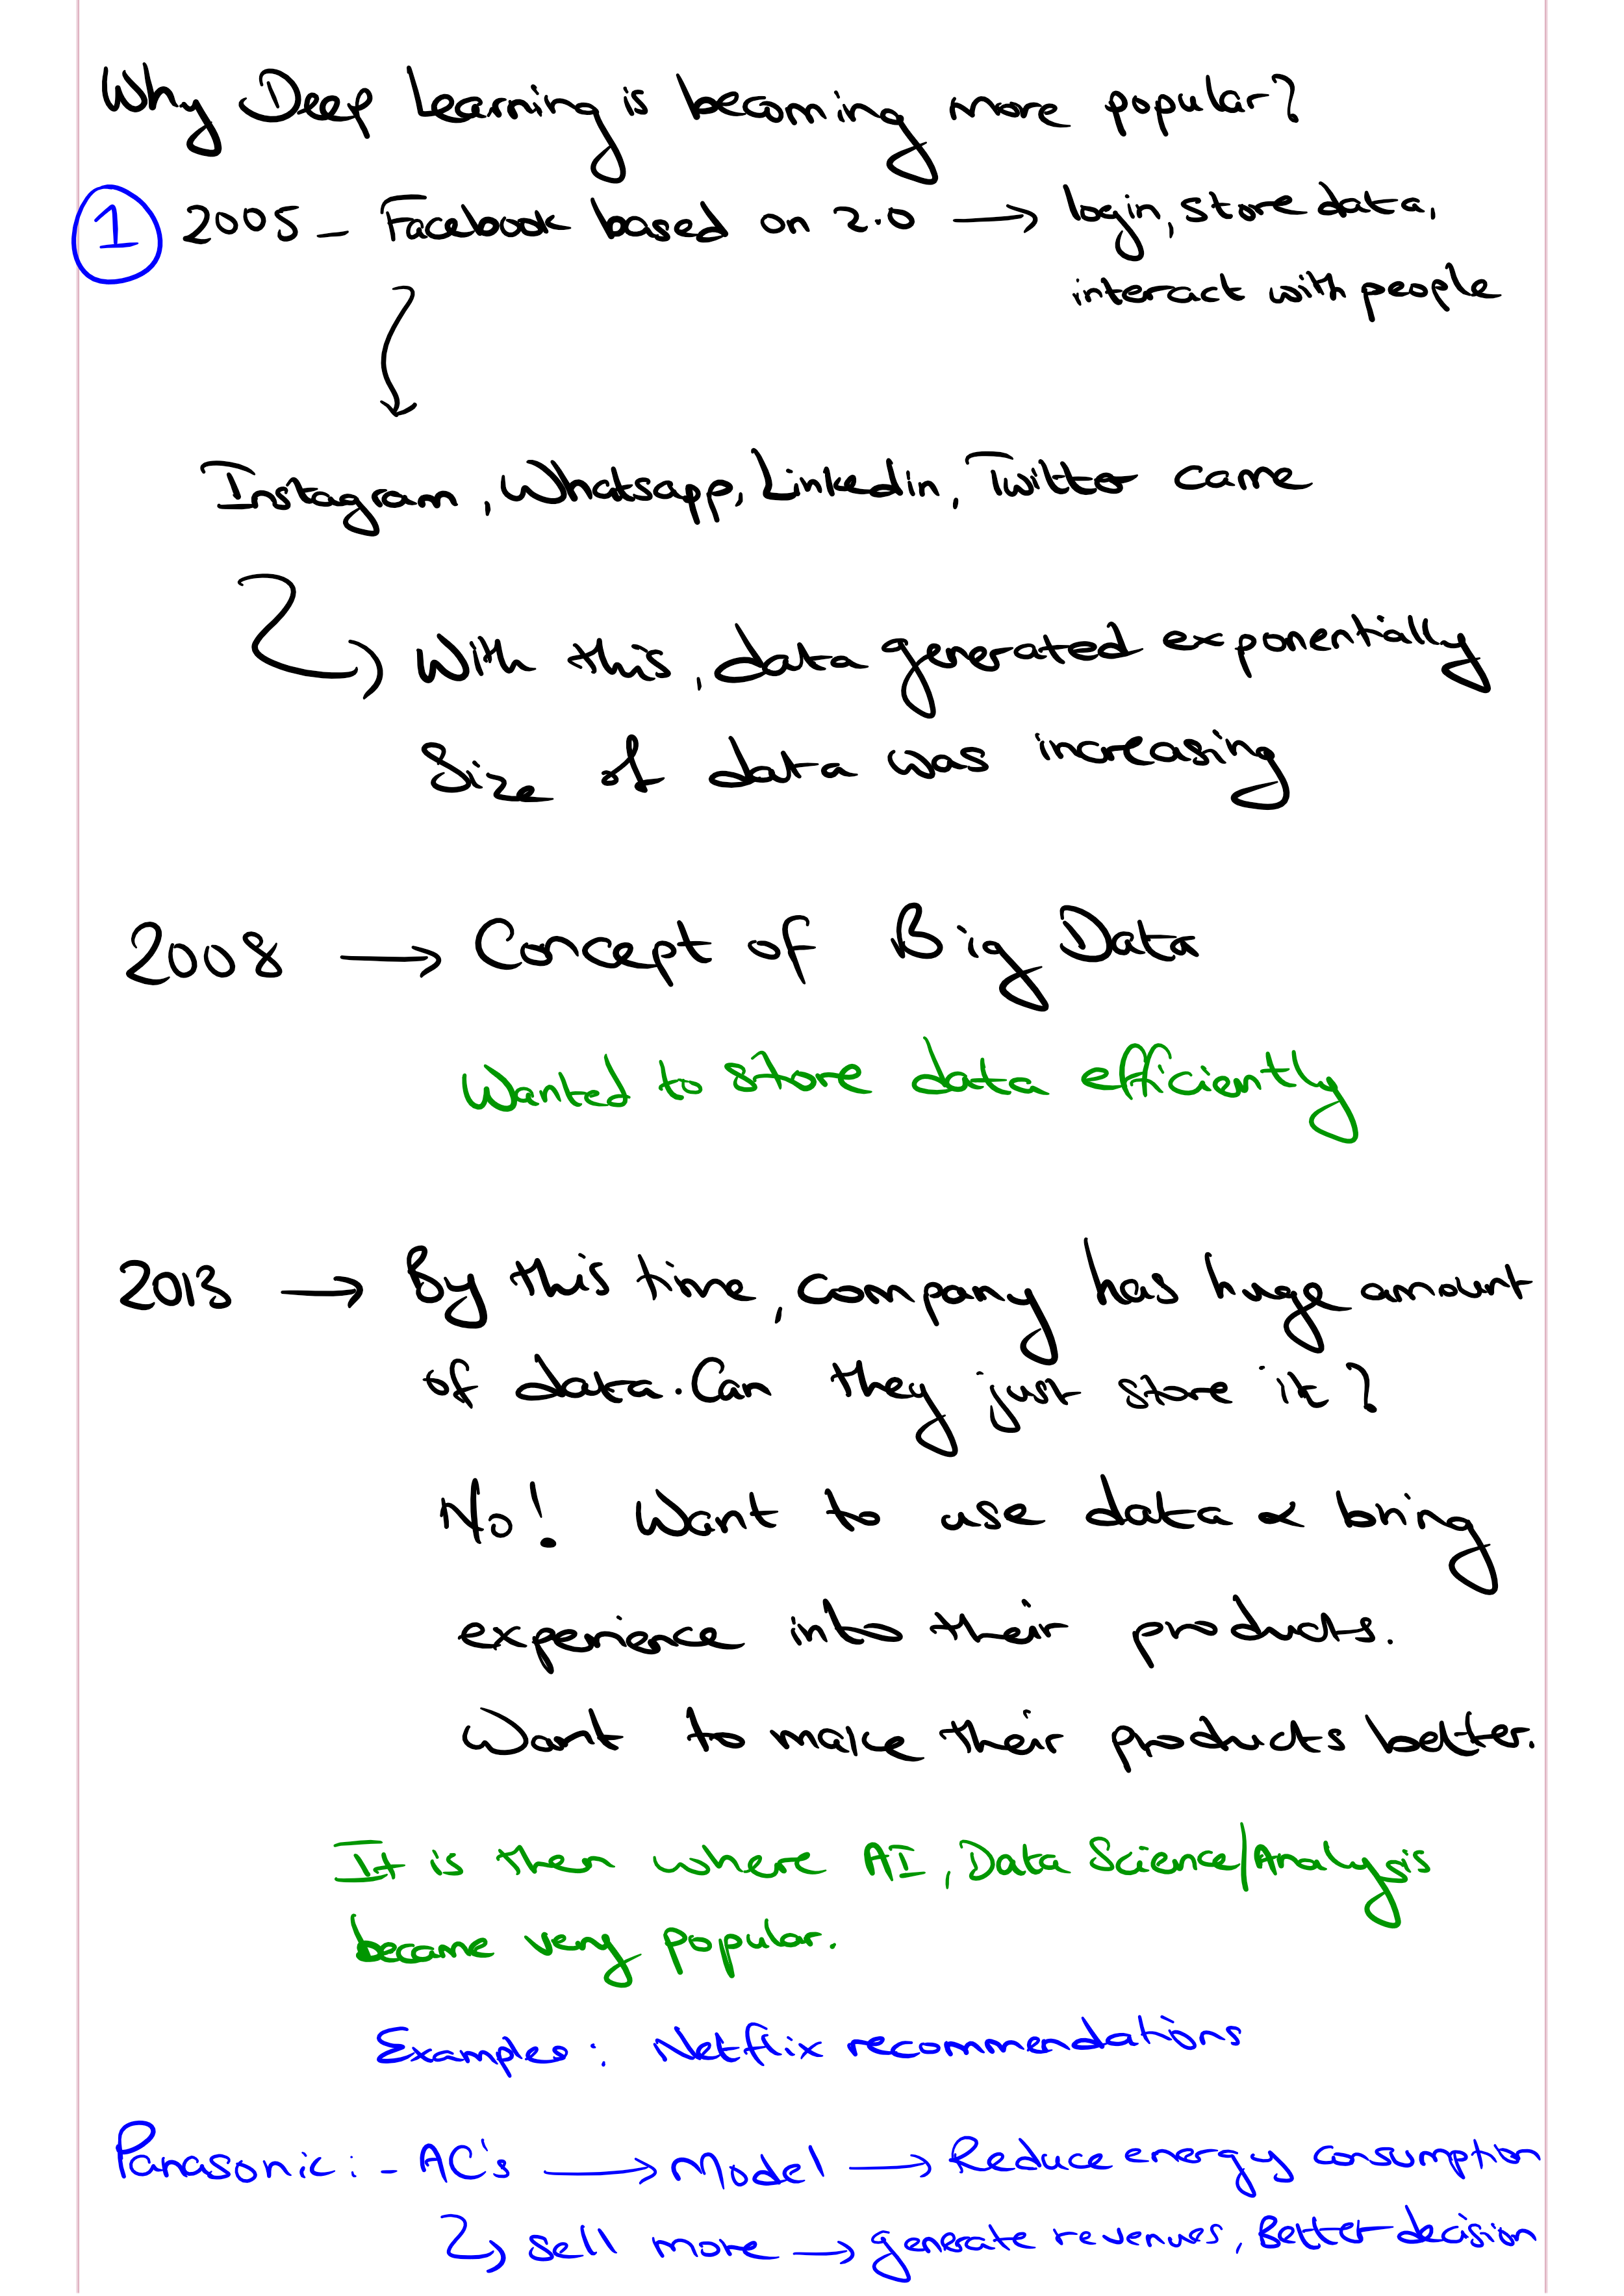 Why Deep Learning is becoming more popular?
1 2005 - Facebook based on 2.0 → login, store data,
interact with people
Instagram, Whatsapp, Linkedin, Twitter came
With this, data generated exponentially
Size of data was increasing
2008 → Concept of Big Data
Wanted to store data efficiently
2013 → By this time, company has huge amount
of data. Can they just store it?
No! Want to use data & bring
experience into their products.
Want to make their products better.
It is then where AI, Data Science/Analysis
became very popular.
Examples: Netflix recommendations
Panasonic: - AC's → Model → Reduce energy consumption
sell more → generate revenues, Better decision